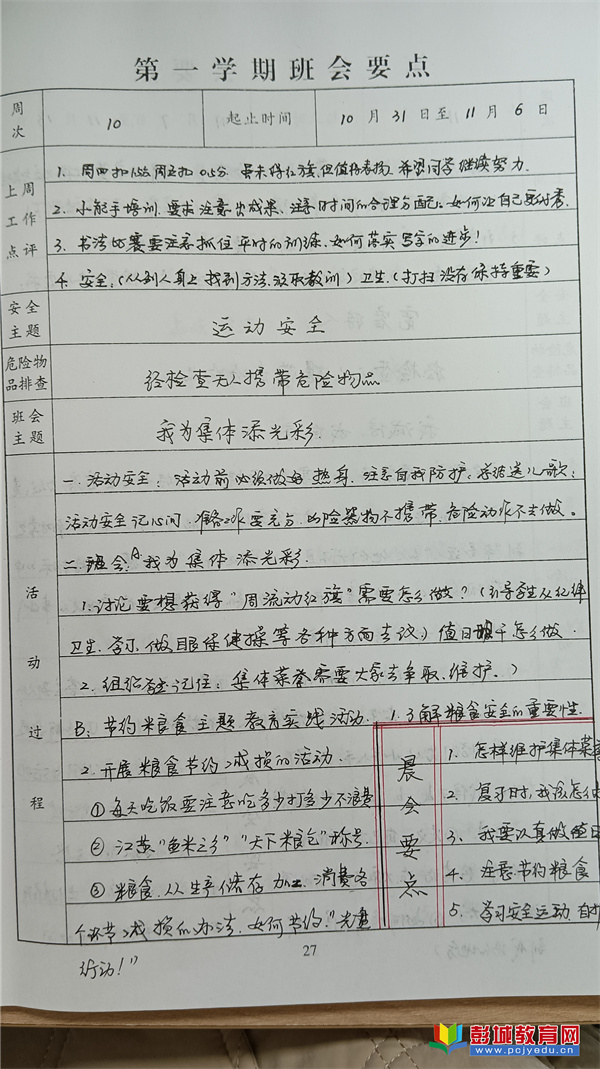 第一学期班会要点
周次 10 起止时间 10 月 31 日至 11 月 6 日
上周工作点评
1. 周四扣1.5分 周五扣0.5分 虽未得红旗,但值得表扬,希望同学继续努力.
2. 小能手培训,要求注意出成果,注意时间的合理分配,如何让自己更优秀.
3. 书法比赛要注意抓住平时的训练,如何落实写字的进步!
4. 安全,(从别人身上找到方法,汲取教训) 卫生,(打扫没有保持重要)
安全主题 运动安全
危险物品排查 经检查无人携带危险物品
班会主题 我为集体添光彩.
活动过程
一. 活动安全: 活动前必须做好热身,注意自我防护,
活动安全记心间,准备工作要充分,凶险器物不携带,危险动作不去做。
二. 班会:A 我为集体添光彩.
1. 讨论要想获得"周流动红旗"需要怎么做?(引导学生从纪律
卫生、学习、做眼保健操等各种方面去议) 值日班干怎么做.
2. 组织学生记住: 集体荣誉需要大家去争取、维护。)
B: 节约粮食主题教育实践活动. 1. 了解粮食安全的重要性.
2. 开展粮食节约减损的活动.
①每天吃饭要注意吃多少打多少不浪费
② 江苏"鱼米之乡" "天下粮仓"称号.
③ 粮食,从生产储存 加工、消费各
个环节减损的办法,如何节约."光盘
行动!"
晨会要点
1. 怎样维护集体荣
2. 复习时,我该怎么
3. 我要认真做值日
4. 注意节约粮食
5. 学习安全运动
27
彭城教育网
www.pcjyedu.cn